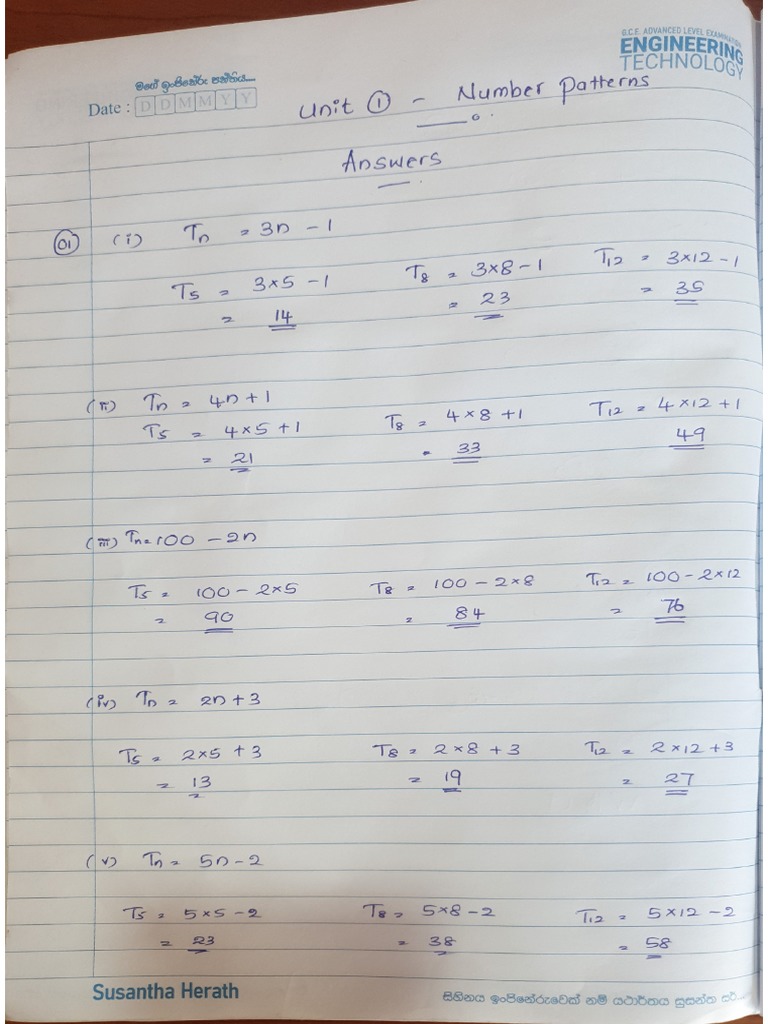 G.C.E. ADVANCED LEVEL EXAMINATION
ENGINEERING
TECHNOLOGY
මගේ ඉංජිනේරු පන්තිය....
Date : D D M M Y Y
Unit ① - Number Patterns
Answers
01 (i) Tn = 3n - 1
T5 = 3×5 - 1 T8 = 3×8 - 1 T12 = 3×12 - 1
= 14 = 23 = 35
(ii) Tn = 4n + 1
T5 = 4×5 + 1 T8 = 4×8 + 1 T12 = 4×12 + 1
= 21 = 33 49
(iii) Tn = 100 - 2n
T5 = 100 - 2×5 T8 = 100 - 2×8 T12 = 100 - 2×12
= 90 = 84 = 76
(iv) Tn = 2n + 3
T5 = 2×5 + 3 T8 = 2×8 + 3 T12 = 2×12 + 3
= 13 = 19 = 27
(v) Tn = 5n - 2
T5 = 5×5 - 2 T8 = 5×8 - 2 T12 = 5×12 - 2
= 23 = 38 = 58
Susantha Herath සිහිනය ඉංජිනේරුවෙක් නම් යථාර්තය සුසන්ත සර්...